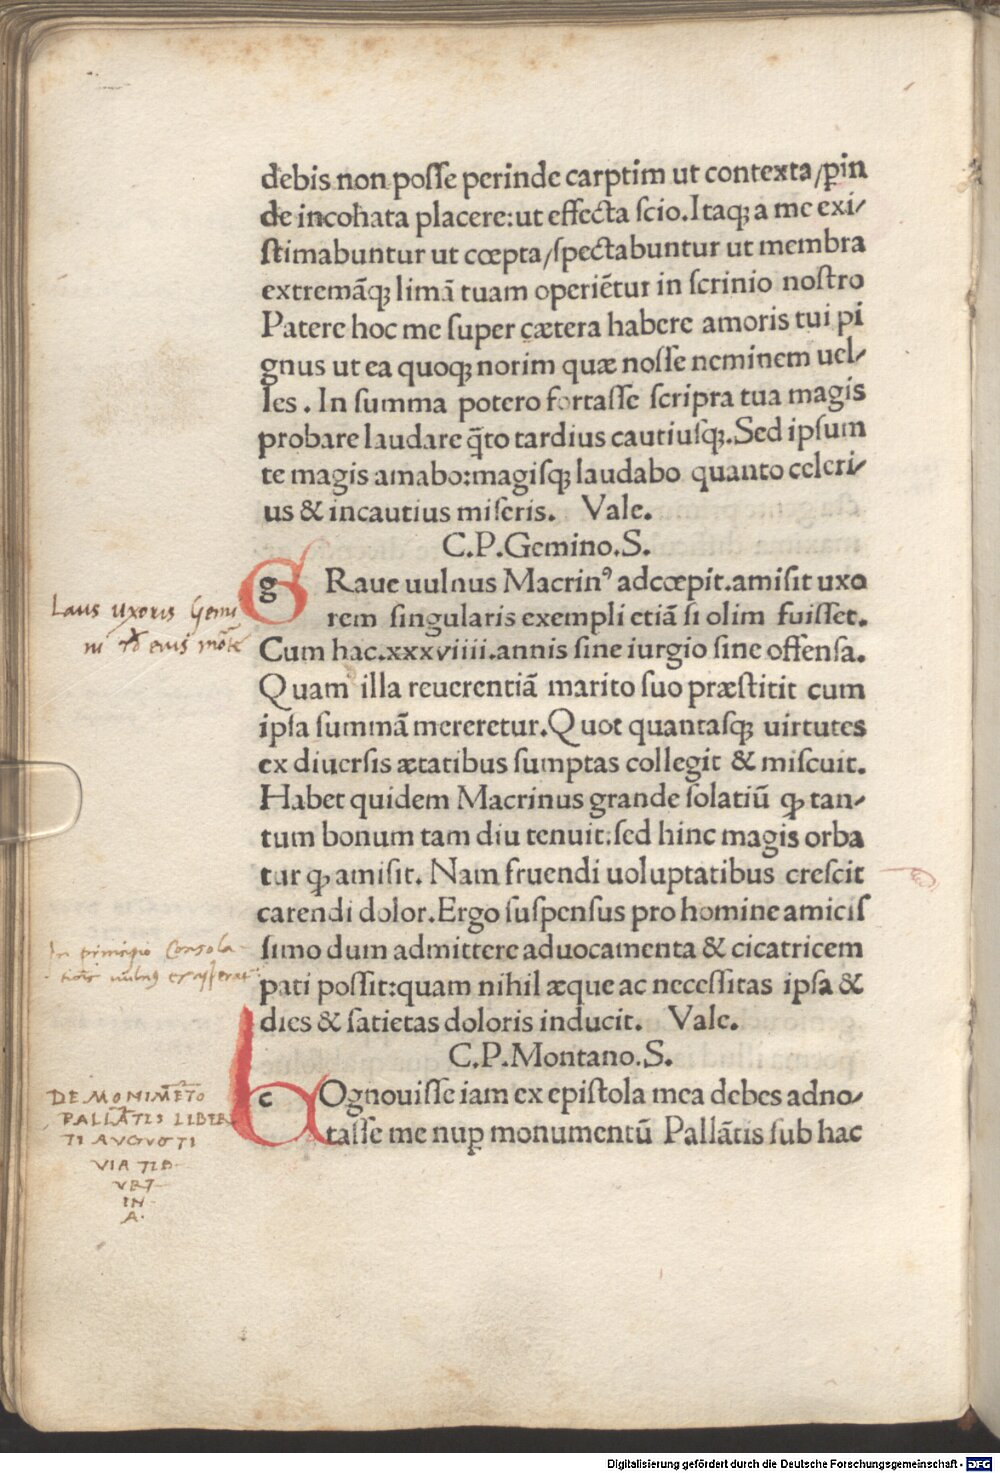 debis non posse perinde carptim ut contexta/ꝑin
de incohata placere:ut effecta scio.Itaqꝫ a me exi/
stimabuntur ut cœpta/spectabuntur ut membra
extremāqꝫ limā tuam operiētur in scrinio nostro
Patere hoc me super cætera habere amoris tui pi
gnus ut ea quoqꝫ norim quæ nosse neminem uel/
les. In summa potero fortasse scripra tua magis
probare laudare q̄to tardius cautiusqꝫ.Sed ipsum
te magis amabo:magisqꝫ laudabo quanto celeri/
us & incautius miseris. Vale.
C.P.Gemino.S.
g Raue uulnus Macrinꝰ adcœpit.amisit uxo
rem singularis exempli etiā si olim fuisset.
Laus uxoris Gemi
ni & eius mōte
Cum hac.xxxviiii.annis sine iurgio sine offensa.
Quam illa reuerentiā marito suo præstitit cum
ipsa summā mereretur.Quot quantasqꝫ uirtutes
ex diuersis ætatibus sumptas collegit & miscuit.
Habet quidem Macrinus grande solatiū ꝙ tan/
tum bonum tam diu tenuit:sed hinc magis orba
tur ꝙ amisit. Nam fruendi uoluptatibus crescit
carendi dolor.Ergo suspensus pro homine amicis
simo dum admittere aduocamenta & cicatricem
pati possit:quam nihil æque ac necessitas ipsa &
In principio Consola
tiōis uulnꝰ exasperat
dies & satietas doloris inducit. Vale.
C.P.Montano.S.
c Ognouisse iam ex epistola mea debes adno/
tasse me nuꝑ monumentū Pallātis sub hac
DE MONIMĒTO
PALLĀTIS LIBER
TI AUGUSTI
VIA TIB
VRT
IN
A.
Digitalisierung gefördert durch die Deutsche Forschungsgemeinschaft - DFG